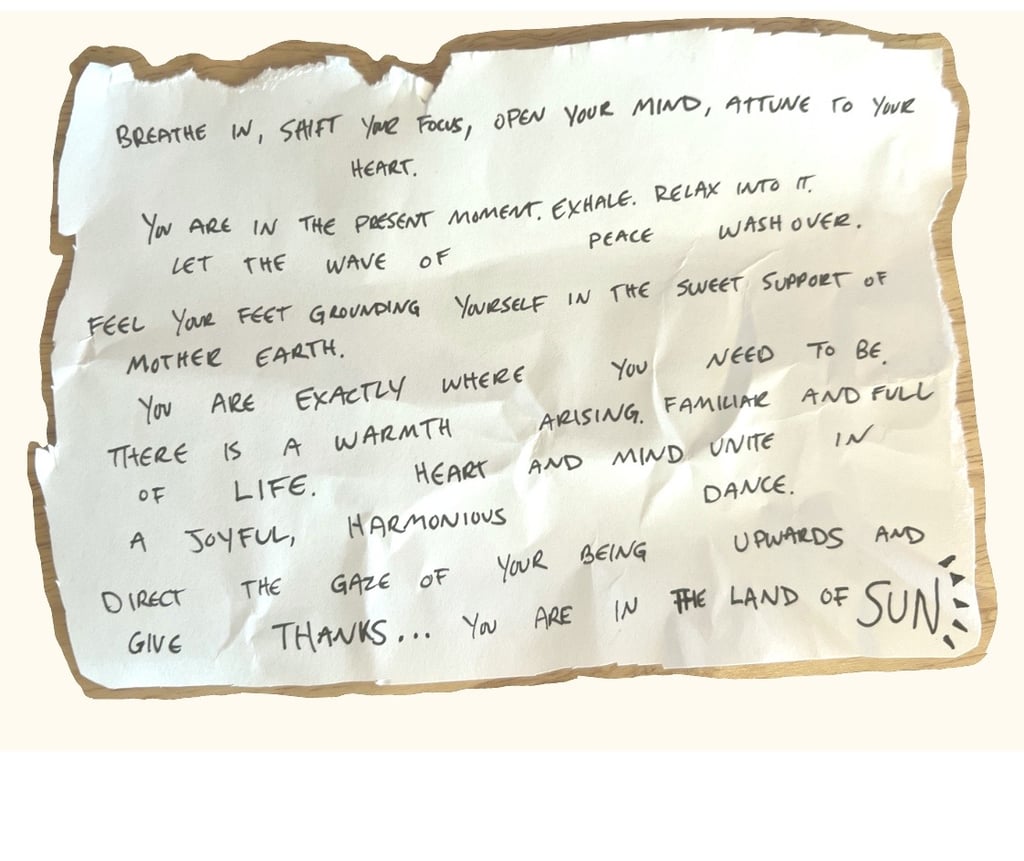 BREATHE IN, SHIFT YOUR FOCUS, OPEN YOUR MIND, ATTUNE TO YOUR
HEART.
YOU ARE IN THE PRESENT MOMENT. EXHALE. RELAX INTO IT.
LET THE WAVE OF PEACE WASH OVER.
FEEL YOUR FEET GROUNDING YOURSELF IN THE SWEET SUPPORT OF
MOTHER EARTH.
YOU ARE EXACTLY WHERE YOU NEED TO BE.
THERE IS A WARMTH ARISING. FAMILIAR AND FULL
OF LIFE. HEART AND MIND UNITE IN
A JOYFUL, HARMONIOUS DANCE.
DIRECT THE GAZE OF YOUR BEING UPWARDS AND
GIVE THANKS... YOU ARE IN THE LAND OF SUN